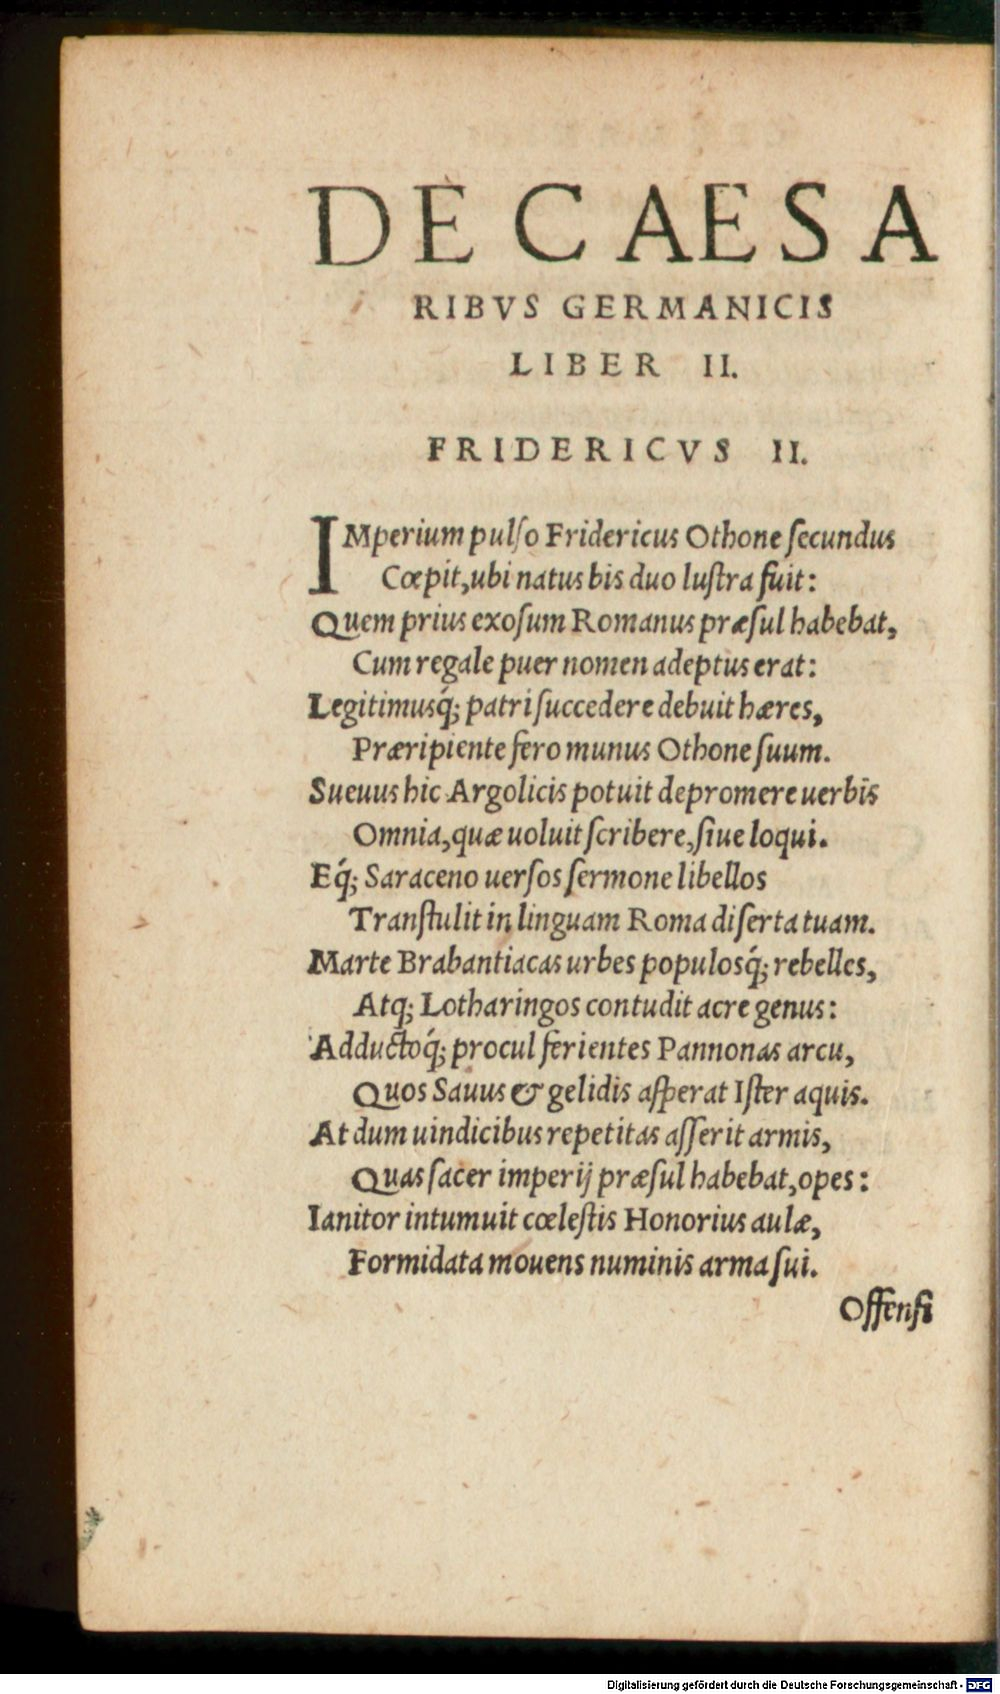 DE CAESA
RIBVS GERMANICIS
LIBER II.
FRIDERICVS II.
IMperium pulſo Fridericus Othone ſecundus
Cœpit, ubi natus bis duo luſtra fuit:
Quem prius exoſum Romanus præſul habebat,
Cum regale puer nomen adeptus erat:
Legitimusq́; patri ſuccedere debuit hæres,
Præripiente fero munus Othone ſuum.
Sueuus hic Argolicis potuit depromere uerbis
Omnia, quæ uoluit ſcribere, ſiue loqui.
Eq́; Saraceno uerſos ſermone libellos
Tranſtulit in linguam Roma diſerta tuam.
Marte Brabantiacas urbes populosq́; rebelles,
Atq; Lotharingos contudit acre genus:
Adductoq́; procul ferientes Pannonas arcu,
Quos Sauus & gelidis aſperat Iſter aquis.
At dum uindicibus repetitas aſſerit armis,
Quas ſacer imperij præſul habebat, opes:
Ianitor intumuit cœleſtis Honorius aulæ,
Formidata mouens numinis arma ſui.
Offenſi
Digitalisierung gefördert durch die Deutsche Forschungsgemeinschaft - DFG